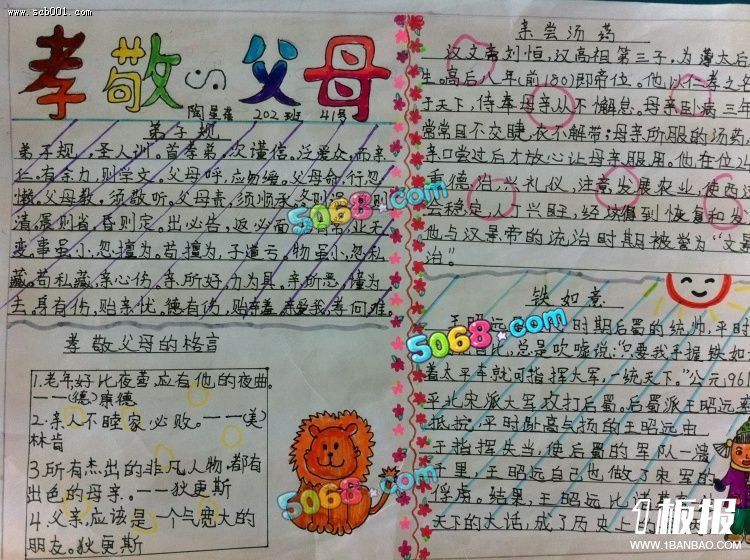 www.scb001.com
孝敬父母
陶星蓓 202班 41号
弟子规
弟子规,圣人训。首孝弟,次谨信。泛爱众,而亲
仁。有余力,则学文。父母呼,应勿缓。父母命,行勿
懒。父母教,须敬听。父母责,须顺承。冬则温,夏则
清。晨则省,昏则定。出必告,返必面。居有常,业无
变。事虽小,勿擅为。苟擅为,子道亏。物虽小,勿私
藏。苟私藏,亲心伤。亲所好,力为具。亲所恶,谨为
去。身有伤,贻亲忧。德有伤,贻亲羞。亲爱我,孝何难。
孝敬父母的格言
1.老年好比夜莺,应有他的夜曲。
——(德)康德
2.亲人不睦家必败。——(美)
林肯
3.所有杰出的非凡人物,都有
出色的母亲。——狄更斯
4.父亲,应该是一个气宽大的
朋友。狄更斯
亲尝汤药
汉文帝刘恒,汉高祖第三子,为薄太后
生。高后八年(前180)即帝位。他以仁孝之
于天下,侍奉母亲从不懈怠。母亲卧病三年
常常目不交睫,衣不解带;母亲所服的汤药,
亲口尝过后才放心让母亲服用。他在位2
重德治,兴礼仪,注意发展农业,使西
会稳定,人丁兴旺,经济得到恢复和发
他与汉景帝的统治时期被誉为“文
治”。
铁如意
王昭远 时期后蜀的统帅,平时
比,总是吹嘘说:“只要我手握铁如
着太平车就可指挥大军,一统天下。”公元961
平北宋派大军攻打后蜀。后蜀派王昭远
抵抗,平时趾高气扬的王昭远由
于指挥失当,使后蜀的军队一溃
千里,王昭远自己也做了宋军的
俘虏。结果,王昭远比
天下的大话,成了历史上
5068.com
5068.com
5068.com
1板报
WWW.1BANBAO.COM